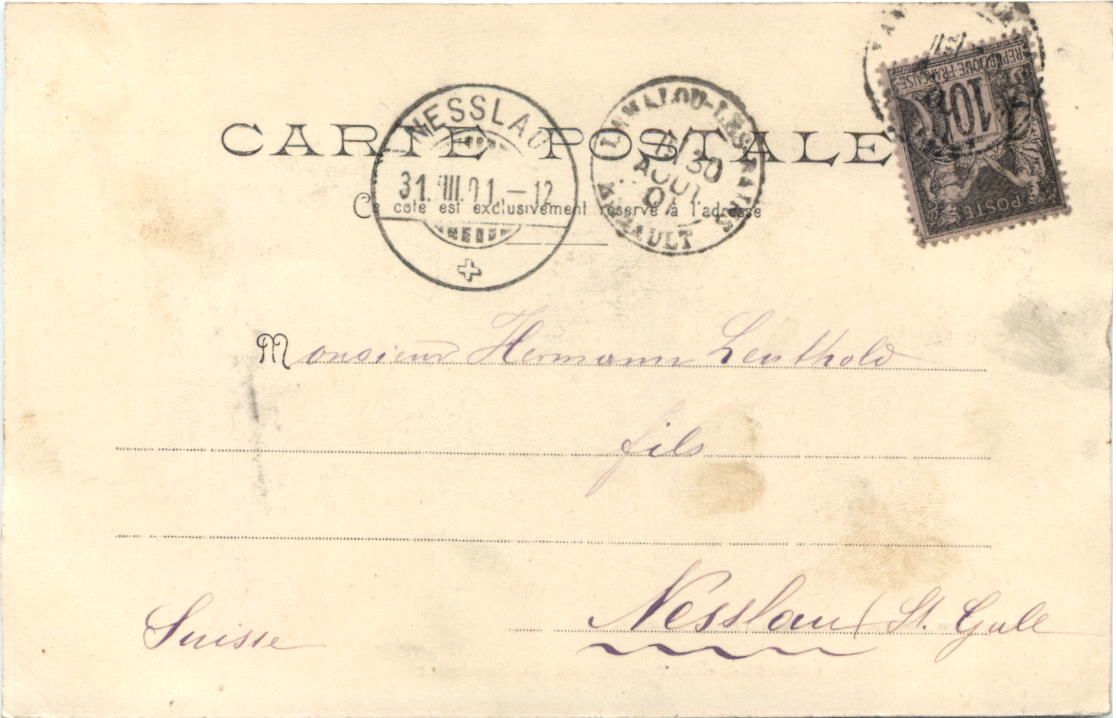 CARTE POSTALE
Ce coté est exclusivement réservé à l'adresse
NESSLAU
31. VIII. 01. – 12
LAMALOU-LES-BAINS
30
AOUT
01
HERAULT
REPUBLIQUE FRANÇAISE
10
POSTES
Monsieur Hermann Leuthold
fils
Nesslau (St. Gall
Suisse